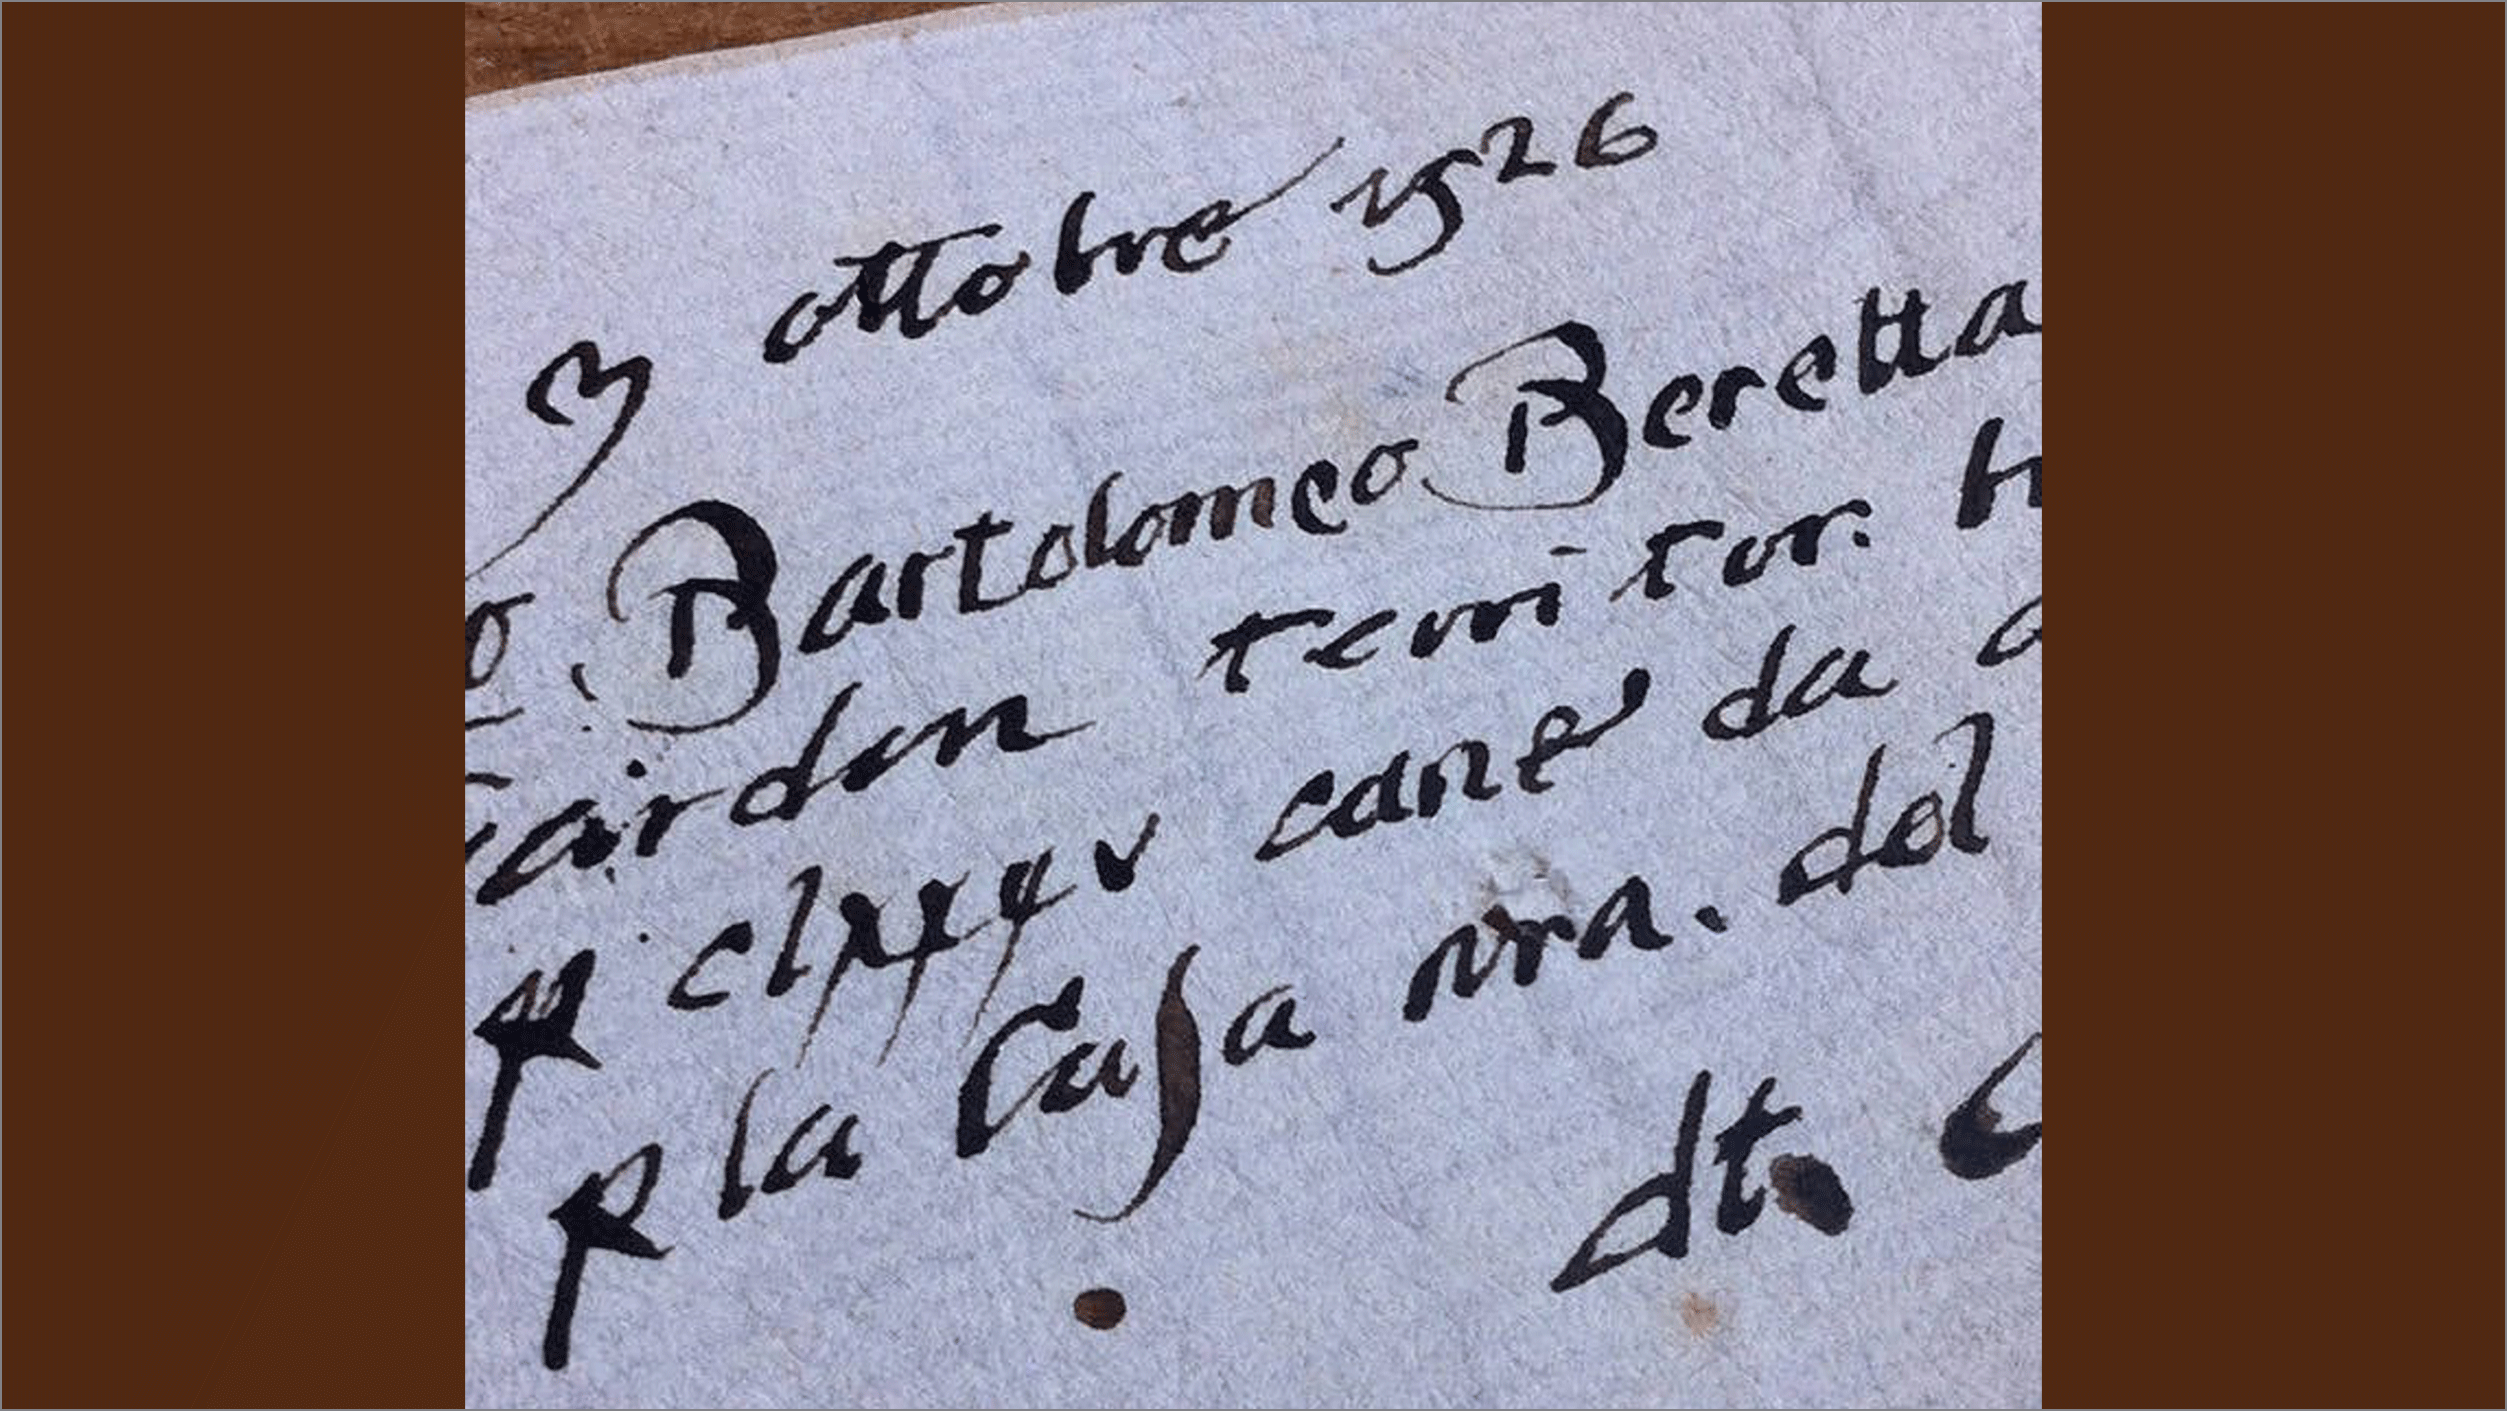 3 ottobre 1526
o. Bartolomeo Beretta
Gardon territor. b
p clxxxv cane da a
p la Casa nra. del
dt.